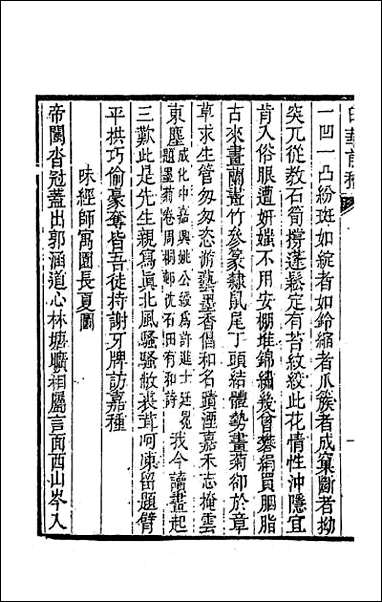 一凹一凸紛斑如綻者如鈴縮者爪簇者成窠斷者拗
突兀從教石筍撐蓬鬆定有苔紋絞此花情性沖隱宜
肯入俗眼遭妍媸不用安棚堆錦繡幾曾礬絹買胭脂
古來畫蘭畫竹參篆隸鼠尾丁頭結體勢畫菊卻於章
草求生管匆匆恣游藝墨香倡和名蹟湮嘉禾志掩雲
東塵成化中嘉興姚公綬為許進士廷冕題墨菊卷周桐邨沈石田有和詩我今讀畫起
三歎此是先生親寫真北風騷騷敝裘茸呵凍留題臂
平拱巧偷豪奪皆吾徒持謝牙牌訪嘉種
味經師寓園長夏圖
帝闉沓冠蓋出郭涵道心林塘曠相屬言面西山岑入